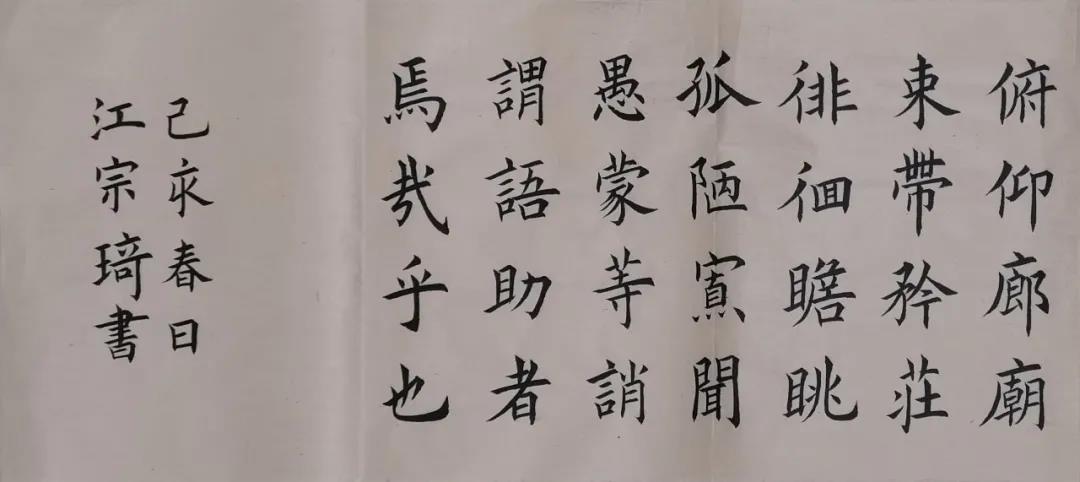 俯仰廊廟
束帶矜莊
徘徊瞻眺
孤陋寡聞
愚蒙等誚
謂語助者
焉哉乎也
己亥春日
江宗琦書